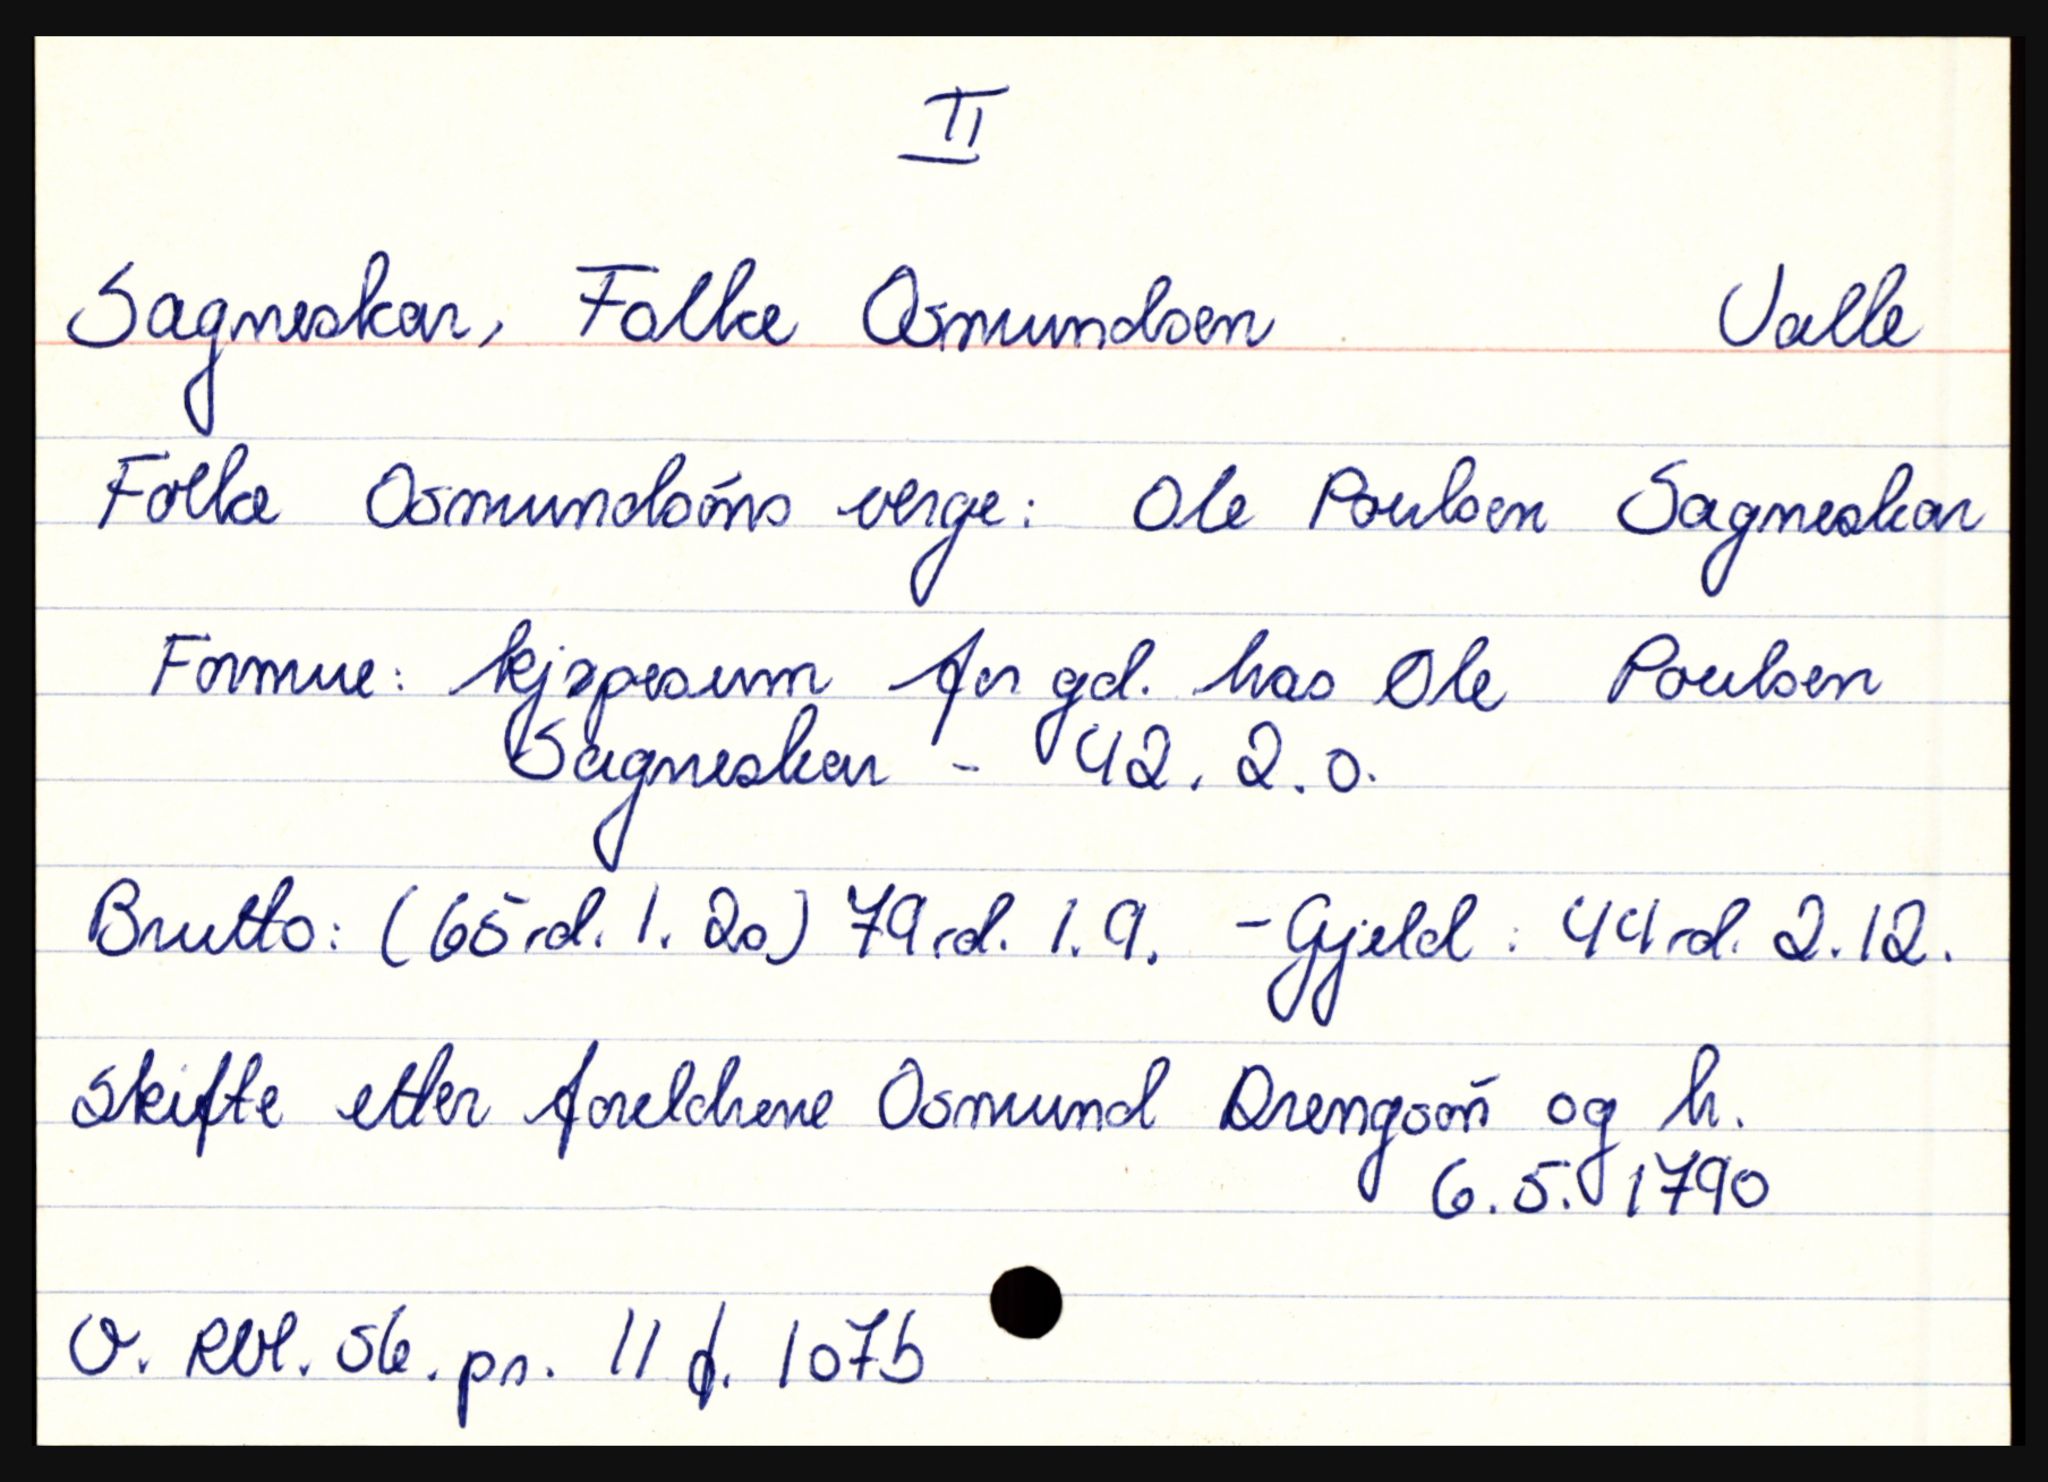 II
Sagneskar, Folke Osmundsen Valle
Folke Osmundsøns verge: Ole Poulsen Sagneskar
Formue: kjøpesum for gd. hos Ole Poulsen
Sagneskar - 42. 2. 0.
Brutto: (65 rd. 1. 20) 79 rd. 1. 9. - Gjeld: 44 rd. 2. 12.
Skifte etter foreldrene Osmund Drengsøn og h.
6. 5. 1790
O. RBl. 56. pr. 11 f. 107b